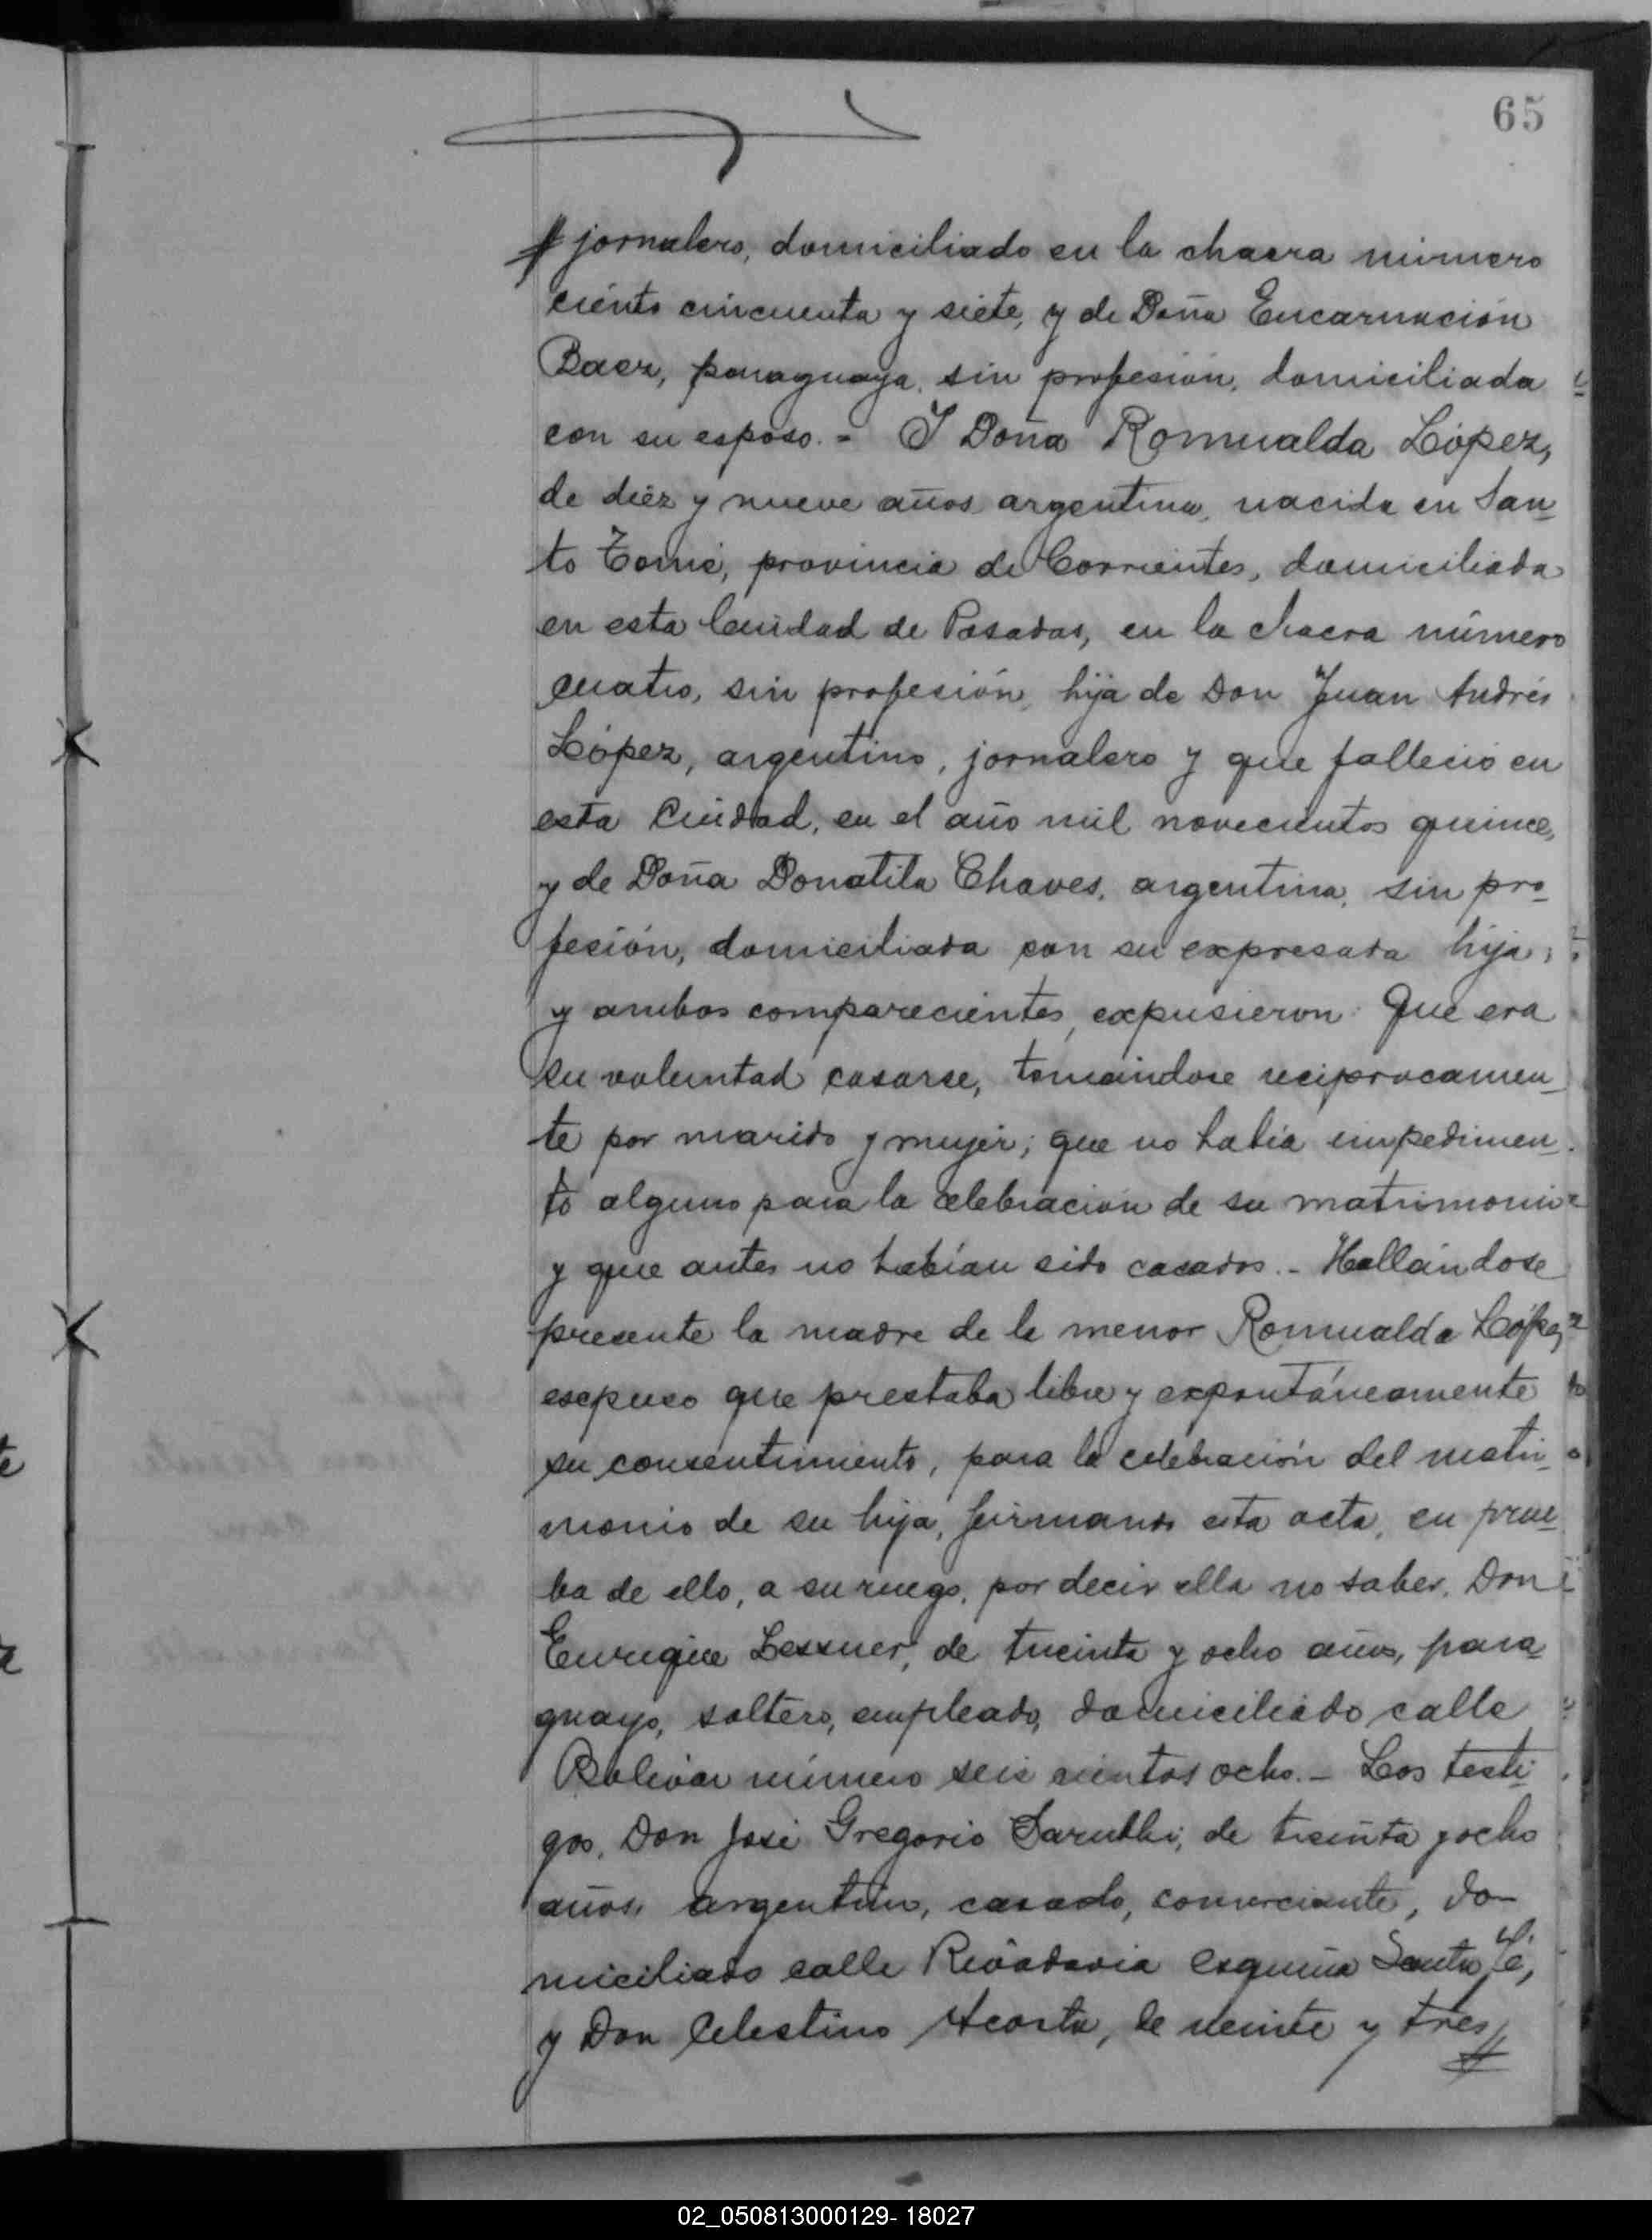 65
jornalero, domiciliado en la chacra número
ciento cincuenta y siete, y de Doña Encarnación
Baez, paraguaya, sin profesión, domiciliada
con su esposo.= I Doña Romualda López,
de diéz y nueve años, argentina, nacida en San-
to Tomé, provincia de Corrientes, domiciliada
en esta Ciudad de Posadas, en la chacra número
cuatro, sin profesión, hija de Don Juan Andrés
López, argentino, jornalero y que falleció en
esta Ciudad, en el año mil novecientos quince,
y de Doña Donatila Chaves, argentina, sin pro-
fesión, domiciliada con su expresada hija;
y ambos comparecientes, expusieron: Que era
su voluntad casarse, tomándose reciprocamen-
te por marido y mujer; que no había impedimen-
to alguno para la celebración de su matrimonio
y que antes no habían sido casados.- Hallándose
presente la madre de la menor Romualda López
expuso que prestaba libre y expontáneamente
su consentimiento, para la celebración del matri-
monio de su hija, firmando esta acta, en prue-
ba de ello, a su ruego, por decir ella no saber, Don
Enrique Lessner, de treinta y ocho años, para-
guayo, soltero, empleado, domiciliado calle
Bolivar número seis cientos ocho.- Los testi-
gos, Don José Gregorio de treinta y ocho
años, argentino, casado, comerciante, do-
miciliado calle Rivadavia esquina Santa Fé,
y Don Celestino Acosta, de veinte y tres
02_050813000129- 18027